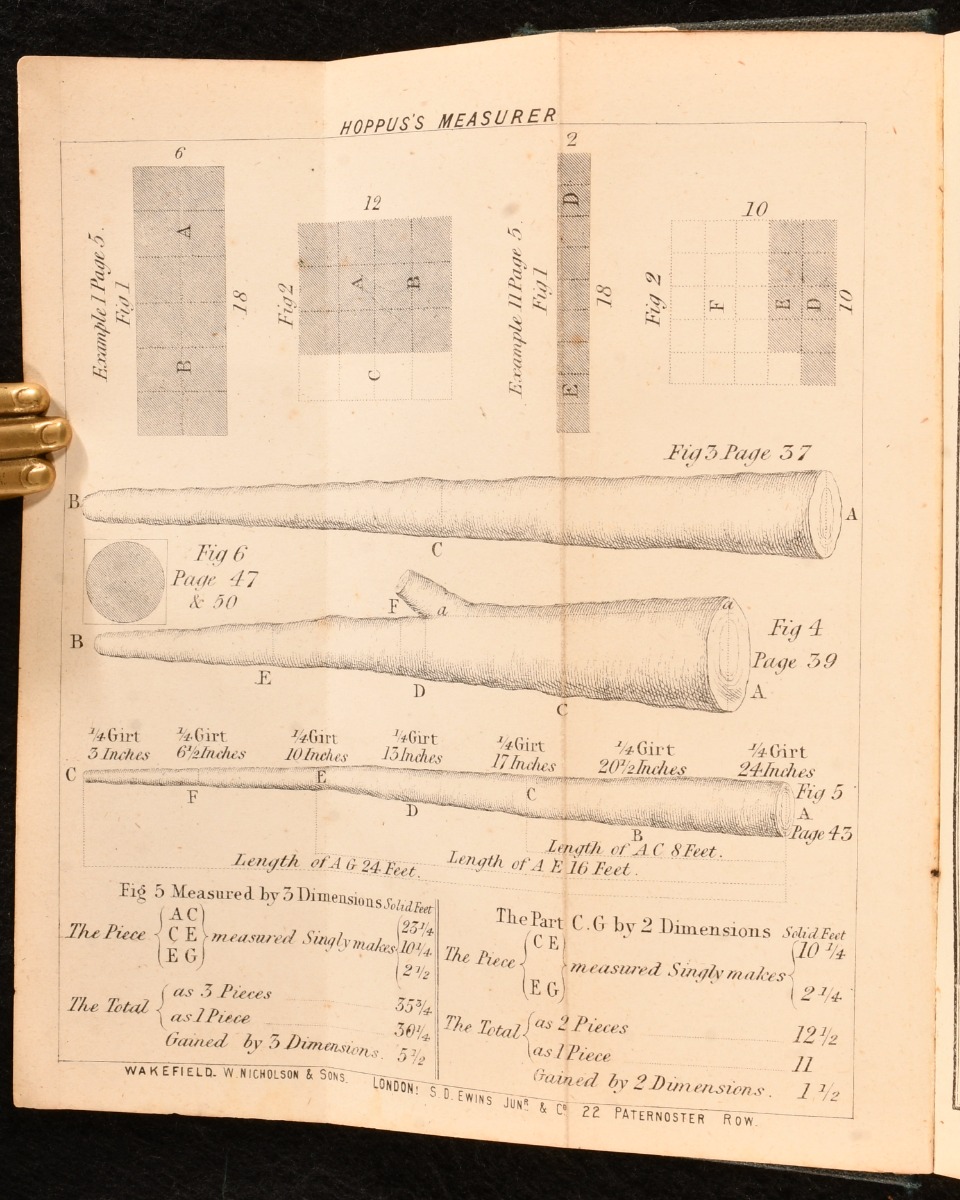 HOPPUS'S MEASURER
Example 1 Page 5.
Fig 1
6
A
B
18
Fig 2
12
A
B
C
Example 11 Page 5
Fig 1
2
D
E
18
Fig 2
10
F
E
D
10
Fig 3 Page 37
B
C
A
Fig 6
Page 47
& 50
F
a
a
B
E
D
C
A
Fig 4
Page 39
¼ Girt
3 Inches
¼ Girt
6½ Inches
¼ Girt
10 Inches
¼ Girt
13 Inches
¼ Girt
17 Inches
¼ Girt
20½ Inches
¼ Girt
24 Inches
C
F
E
D
C
B
Fig 5
A
Page 43
Length of A C 8 Feet.
Length of A G 24 Feet.
Length of A E 16 Feet.
Fig 5 Measured by 3 Dimensions Solid Feet
The Piece { A C
C E
E G } measured Singly makes { 23¼
10¼
2½
The Total { as 3 Pieces 35¾
as 1 Piece 30¼
Gained by 3 Dimensions. 5½
The Part C.G by 2 Dimensions Solid Feet
The Piece { C E
E G } measured Singly makes { 10 ¼
2 ¼
The Total { as 2 Pieces 12½
as 1 Piece 11
Gained by 2 Dimensions. 1 ½
WAKEFIELD. W. NICHOLSON & SONS. LONDON: S. D. EWINS JUNR & Co 22 PATERNOSTER ROW.